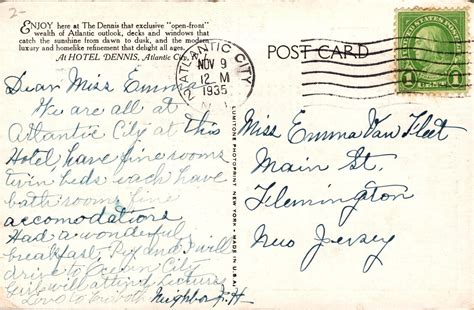 2-
ENJOY here at The Dennis that exclusive "open-front"
wealth of Atlantic outlook, decks and windows that
catch the sunshine from dawn to dusk, and the modern
luxury and homelike refinement that delight all ages.
At HOTEL DENNIS, Atlantic City.
ATLANTIC CITY
NOV 9
12 M
1935
N.J.
POST CARD
UNITED STATES POSTAGE
1 1
Dear Miss Emma
We are all at
Atlantic City at this
Hotel, have fine rooms
twin beds each have
bath rooms fine
accomodations
Had a wonderful
breakfast, and I will
drive to Ocean City
Girls will attend lectures
Love to both Neighbor H
LUMITONE PHOTOPRINT · NEW YORK · MADE IN U.S.A.
Miss Emma Van Fleet
Main St.
Flemington
New Jersey